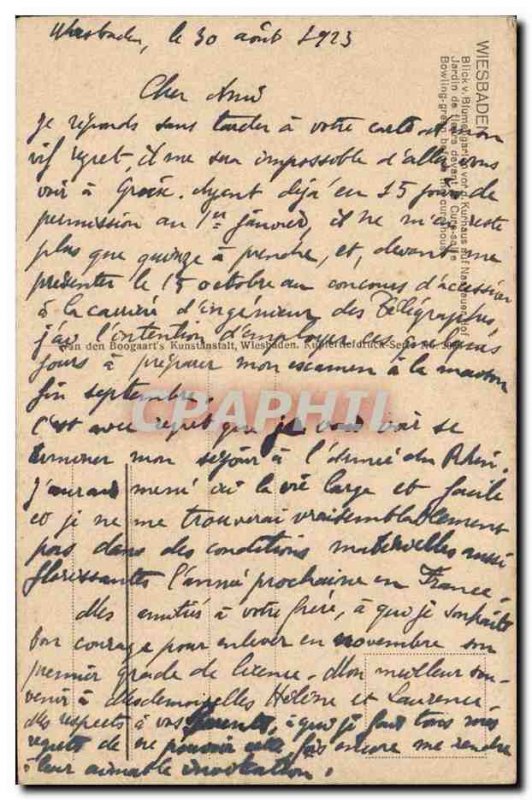 Wiesbaden, le 30 août 1923
Cher Ami
Je réponds sans tarder à votre carte. A mon
vif regret, il me sera impossible d'aller vous
voir à Ayant déjà eu 15 jours de
permission au 1er janvier, il ne m'en reste
plus que quinze à prendre, et, devant me
présenter le 15 octobre au concours d'accession
à la carrière d'ingénieur des Télégraphes,
j'ai l'intention d'employer ces quelques
jours à préparer mon examen à la maison
fin septembre.
C'est avec regret que je vais voir se
terminer mon séjour à l'armée du Rhin.
J'aurai mené ici la vie large et facile
et je ne me trouverai vraisemblablement
pas dans des conditions matérielles aussi
florissantes l'année prochaine en France.
Mes amitiés à votre frère, à qui je souhaite
bon courage pour enlever en novembre son
premier grade de licence. Mon meilleur sou-
venir à Mesdemoiselles Hélène et Laurence.
Mes respects à vos Parents, à qui je fais tous mes
regrets de ne pouvoir cette fois encore me rendre
à leur aimable invitation.
WIESBADEN
Blick v. Blumengarten vor d. Kurhaus auf Nassauer Hof
Jardin de fleurs devant la Cure-salle
Bowling-green before the curehouse
van den Boogaart's Kunstanstalt, Wiesbaden. Kupfertiefdruck-Serie
CPAPHIL